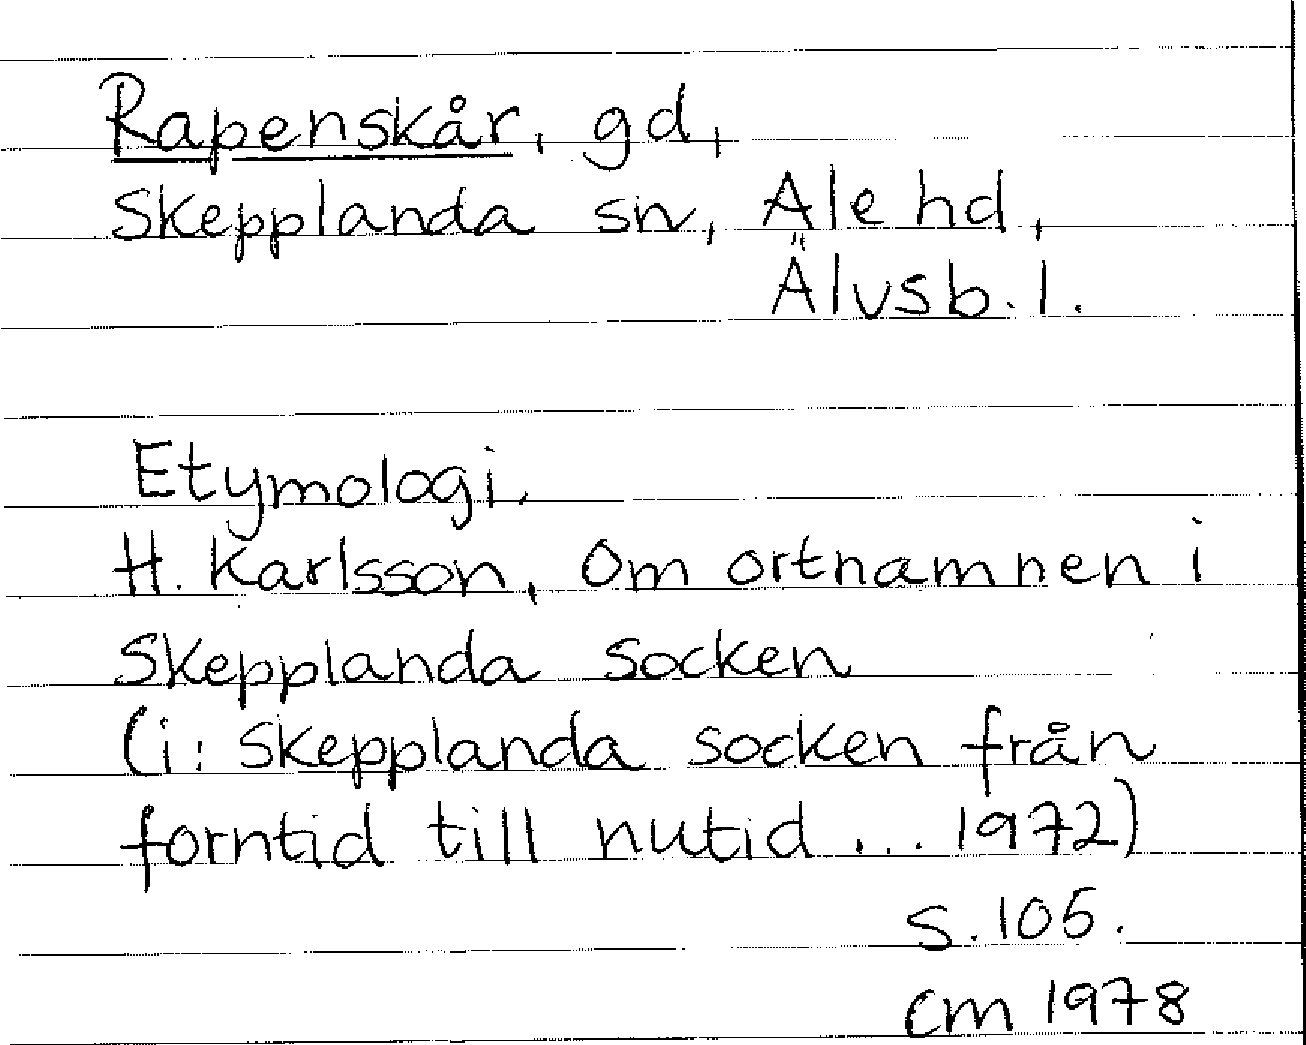 Rapenskår, gd,
Skepplanda sn, Ale hd,
Älvsb. l.
Etymologi.
H. Karlsson, Om ortnamnen i
Skepplanda socken
(i: Skepplanda socken från
forntid till nutid ... 1972)
s. 105.
CM 1978